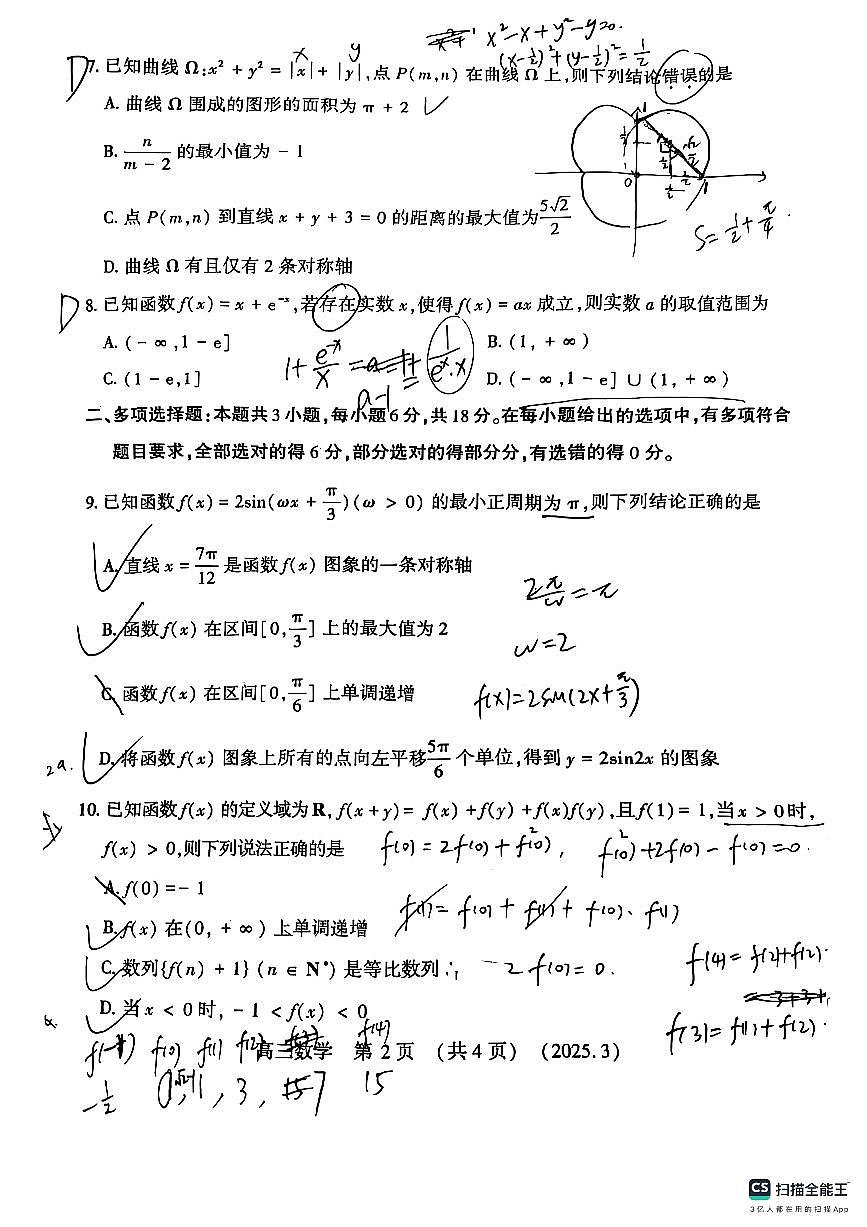 x²-x+y²-y=0.
(x-1/2)²+(y-1/2)²=1/2
x y
D 7. 已知曲线 Ω:x² + y² = |x| + |y|,点 P(m,n) 在曲线 Ω 上,则下列结论错误的是
A. 曲线 Ω 围成的图形的面积为 π + 2
B. n/(m - 2) 的最小值为 - 1
C. 点 P(m,n) 到直线 x + y + 3 = 0 的距离的最大值为 5√2/2
S=1/2+π/4.
D. 曲线 Ω 有且仅有 2 条对称轴
D 8. 已知函数 f(x) = x + e⁻ˣ,若存在实数 x,使得 f(x) = ax 成立,则实数 a 的取值范围为
A. (- ∞ ,1 - e] B. (1, + ∞)
1+ e⁻ˣ/x
a-1 = 1/(eˣ·x)
C. (1 - e,1] D. (- ∞ ,1 - e] ∪ (1, + ∞)
二、多项选择题:本题共 3 小题,每小题 6 分,共 18 分。在每小题给出的选项中,有多项符合
题目要求,全部选对的得 6 分,部分选对的得部分分,有选错的得 0 分。
9. 已知函数 f(x) = 2sin(ωx + π/3)(ω > 0) 的最小正周期为 π,则下列结论正确的是
A. 直线 x = 7π/12 是函数 f(x) 图象的一条对称轴
2π/ω=π
B. 函数 f(x) 在区间[0,π/3] 上的最大值为 2
ω=2
C. 函数 f(x) 在区间[0,π/6] 上单调递增
f(x)=2sin(2x+π/3)
D. 将函数 f(x) 图象上所有的点向左平移 5π/6 个单位,得到 y = 2sin2x 的图象
10. 已知函数 f(x) 的定义域为 R, f(x + y)= f(x) +f(y) +f(x)f(y) ,且 f(1) = 1,当 x > 0 时,
f(x) > 0,则下列说法正确的是
f(0) = 2f(0) + f²(0),
f²(0)+2f(0)-f(0)=0.
A. f(0) =- 1
f(1)= f(0)+f(1)+f(0)·f(1)
B. f(x) 在(0, + ∞) 上单调递增
C. 数列{f(n) + 1} (n ∈ N*) 是等比数列
2f(0)=0.
f(4)=f(2)+f(2)·
D. 当 x < 0 时, - 1 < f(x) < 0
f(3)=f(1)+f(2).
f(-1) f(0) f(1) f(2) f(4)
高三数学 第 2 页 (共 4 页) (2025.3)
-1/2 0, 1, 3, 7 15
CS 扫描全能王
3亿人都在用的扫描App